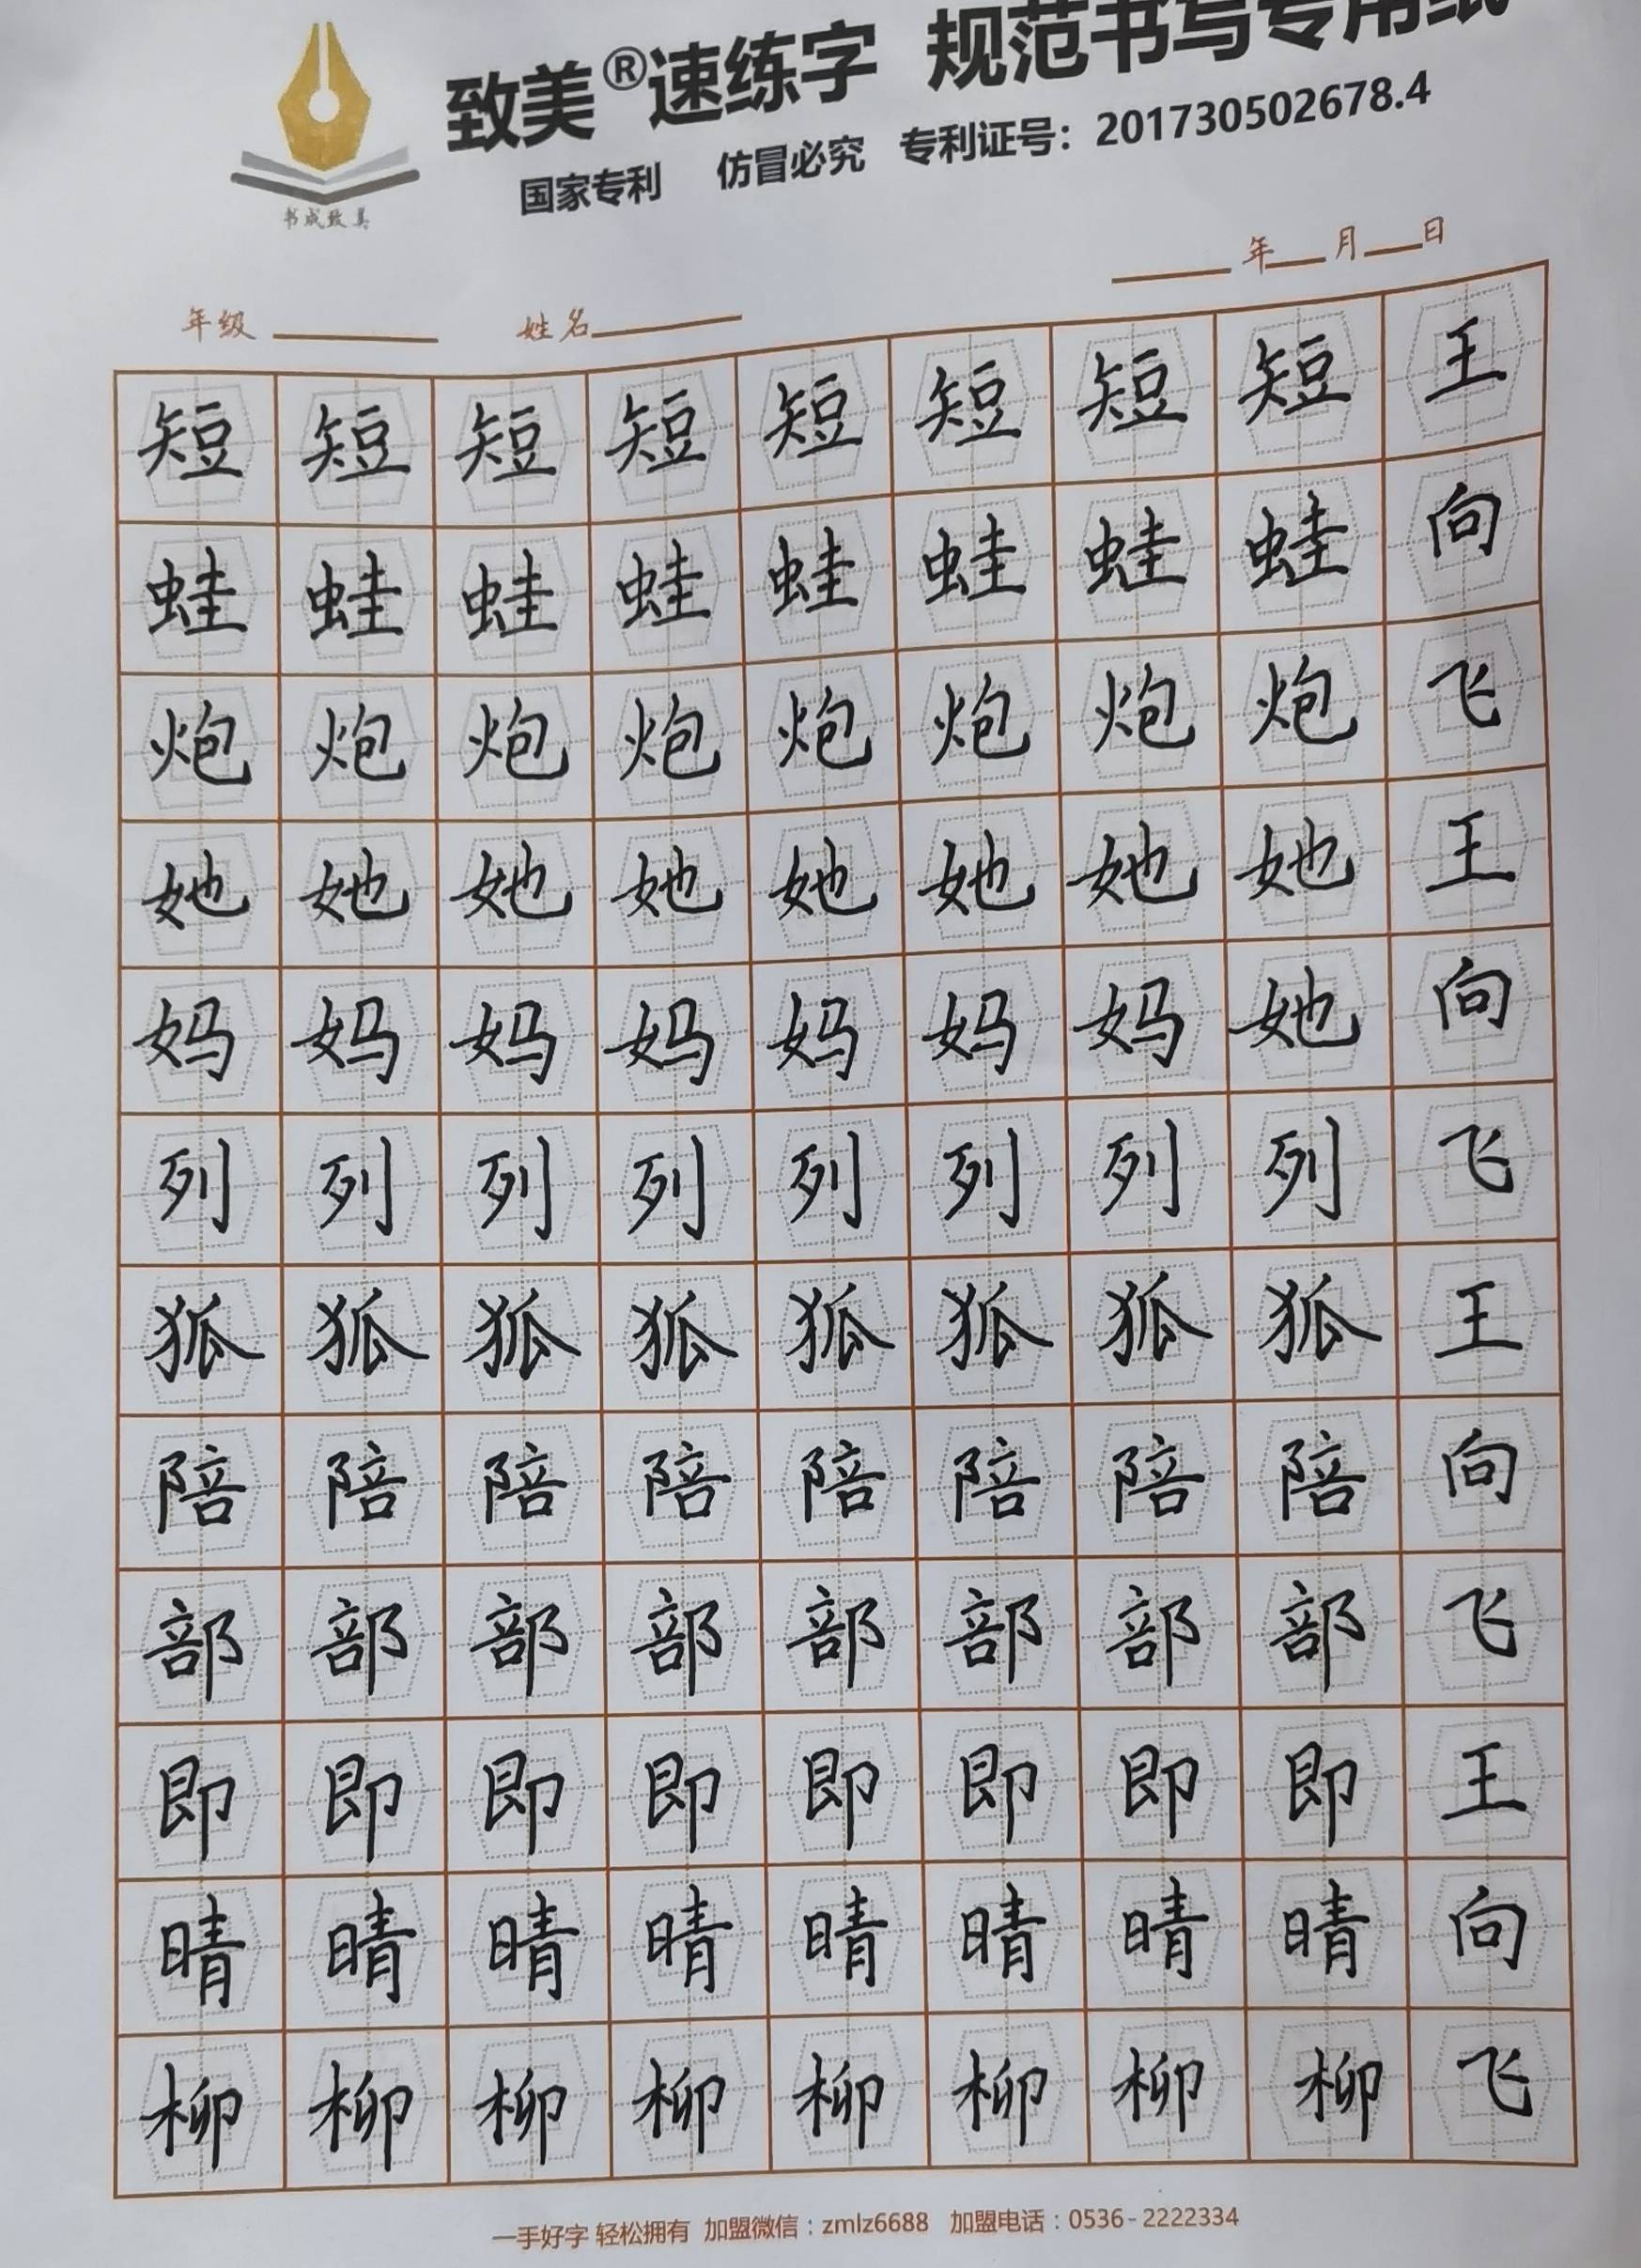 致美®速练字 规范书写专用纸
国家专利 仿冒必究 专利证号：201730502678.4
书成致美
年 月 日
年级 姓名
短 短 短 短 短 短 短 短 王
蛙 蛙 蛙 蛙 蛙 蛙 蛙 蛙 向
炮 炮 炮 炮 炮 炮 炮 炮 飞
她 她 她 她 她 她 她 她 王
妈 妈 妈 妈 妈 妈 妈 她 向
列 列 列 列 列 列 列 列 飞
狐 狐 狐 狐 狐 狐 狐 狐 王
陪 陪 陪 陪 陪 陪 陪 陪 向
部 部 部 部 部 部 部 部 飞
即 即 即 即 即 即 即 即 王
晴 晴 晴 晴 晴 晴 晴 晴 向
柳 柳 柳 柳 柳 柳 柳 柳 飞
一手好字 轻松拥有 加盟微信：zmlz6688 加盟电话：0536-2222334